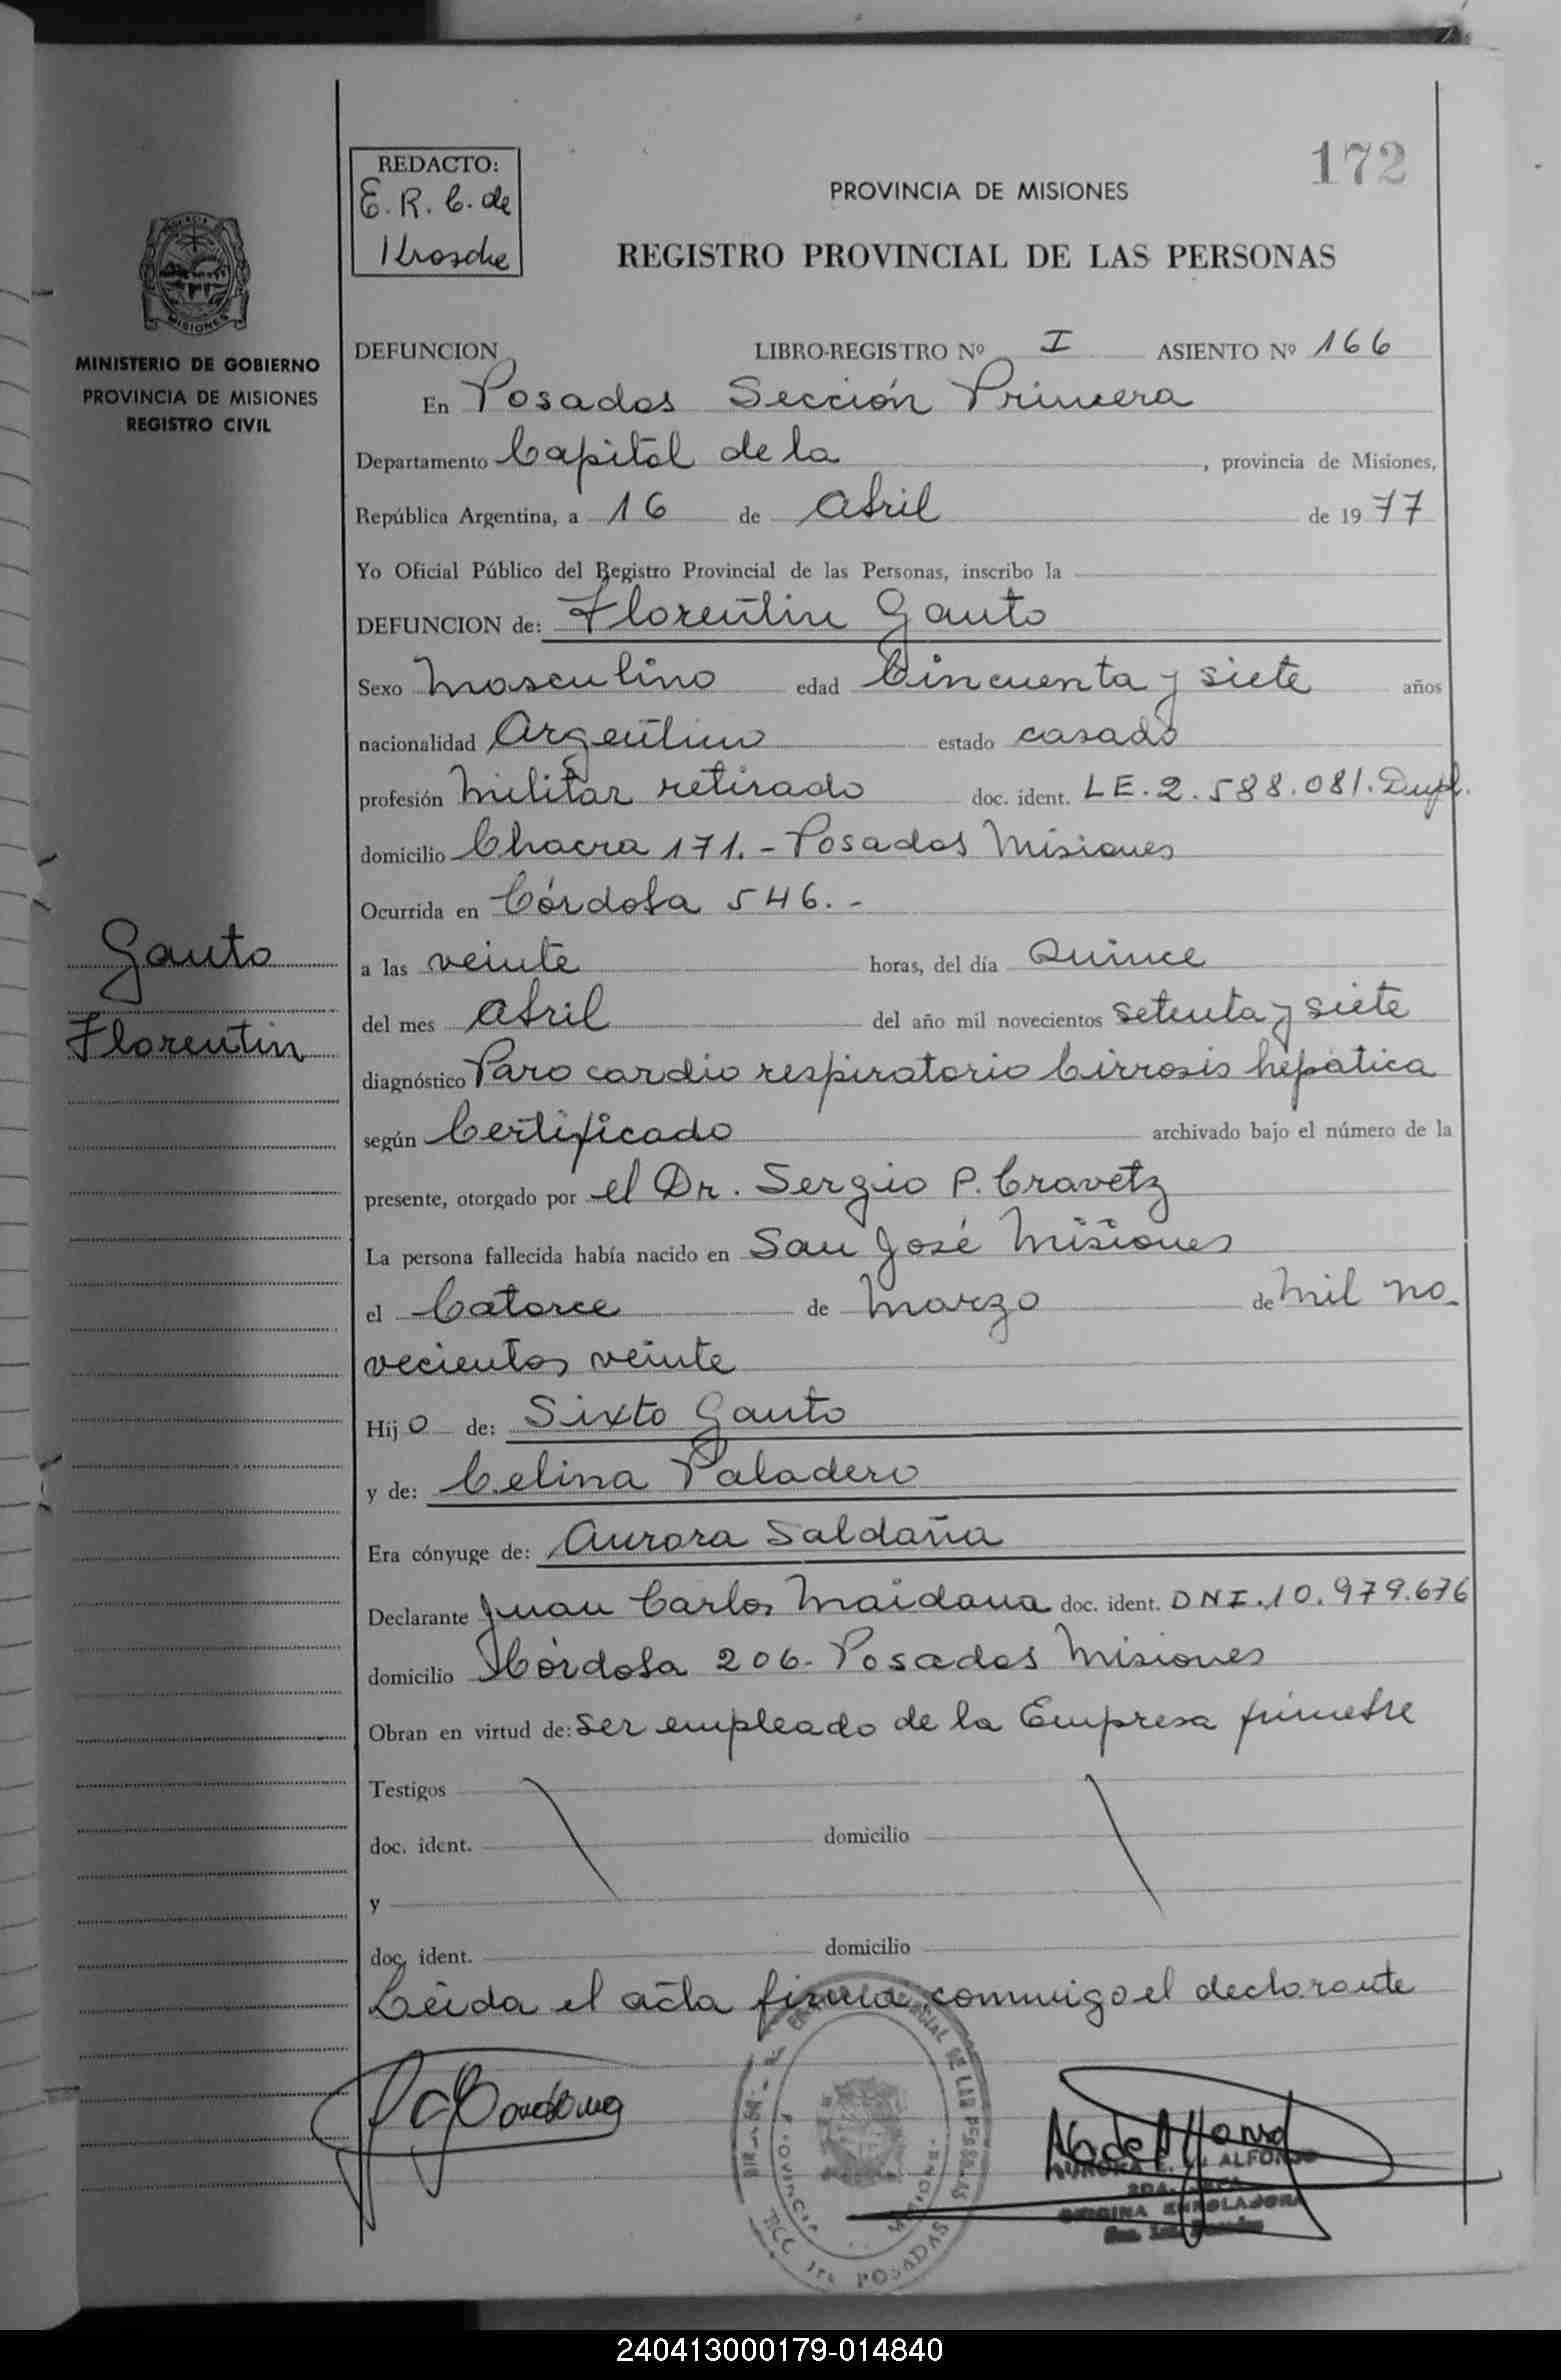 172
REDACTO:
E. R. C. de
Krosche
PROVINCIA DE MISIONES
REGISTRO PROVINCIAL DE LAS PERSONAS
MISIONES
MINISTERIO DE GOBIERNO
PROVINCIA DE MISIONES
REGISTRO CIVIL
DEFUNCION LIBRO-REGISTRO Nº I ASIENTO Nº 166
En Posadas Sección Primera
Departamento Capital de la , provincia de Misiones,
República Argentina, a 16 de Abril de 1977
Yo Oficial Público del Registro Provincial de las Personas, inscribo la
DEFUNCION de: Florentin Gauto
Sexo Masculino edad Cincuenta y siete años
nacionalidad Argentino estado casado
profesión Militar retirado doc. ident. LE. 2.588.081. Dupl.
domicilio Chacra 171.- Posadas Misiones
Ocurrida en Córdoba 546.-
Gauto
Florentin
a las veinte horas, del día Quince
del mes Abril del año mil novecientos setenta y siete
diagnóstico Paro cardio respiratorio Cirrosis hepática
según Certificado archivado bajo el número de la
presente, otorgado por el Dr. Sergio P. Cravetz
La persona fallecida había nacido en San José Misiones
el Catorce de Marzo de Mil no-
vecientos veinte
Hijo de: Sixto Gauto
y de: Celina Paladero
Era cónyuge de: Aurora Saldaña
Declarante Juan Carlos Maidana doc. ident. DNI. 10.979.676
domicilio Córdoba 206- Posadas Misiones
Obran en virtud de: Ser empleado de la Empresa fúnebre
Testigos
doc. ident. domicilio
y
doc. ident. domicilio
Leída el acta firma conmigo el declarante
PROVINCIA MISIONES
POSADAS
ALFONSO
240413000179-014840